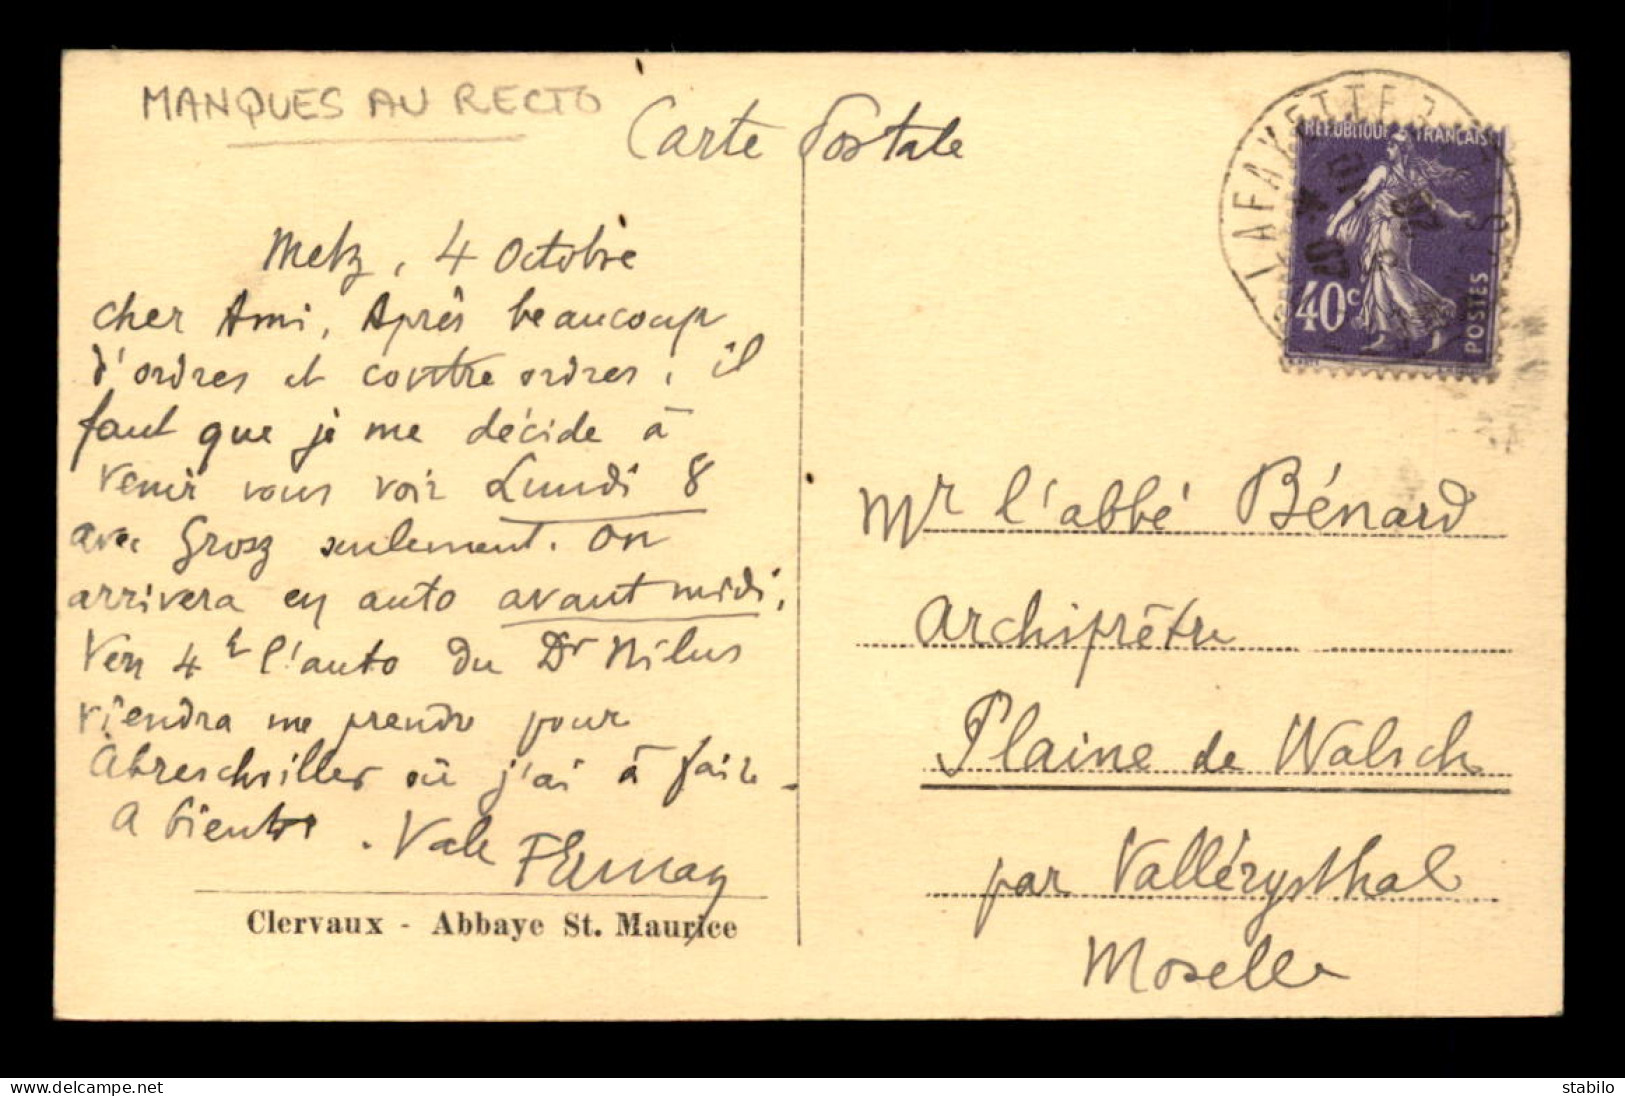 MANQUES AU RECTO
Carte Postale
Metz, 4 Octobre
cher Ami, Après beaucoup
d'ordres et contre ordres, il
faut que je me décide à
venir vous voir Lundi 8
avec Grosz seulement. On
arrivera en auto avant midi.
Vers 4h l'auto du Dr Nilus
viendra me prendre pour
Abreschviller où j'ai à faire.
A bientôt. Vale
Clervaux - Abbaye St. Maurice
LAFAYETTE
REPUBLIQUE FRANÇAISE
40c
POSTES
Mr l'abbé Bénard
Archiprêtre
Plaine de Walsch
par Vallérysthal
Moselle
delcampe.net
stabilo